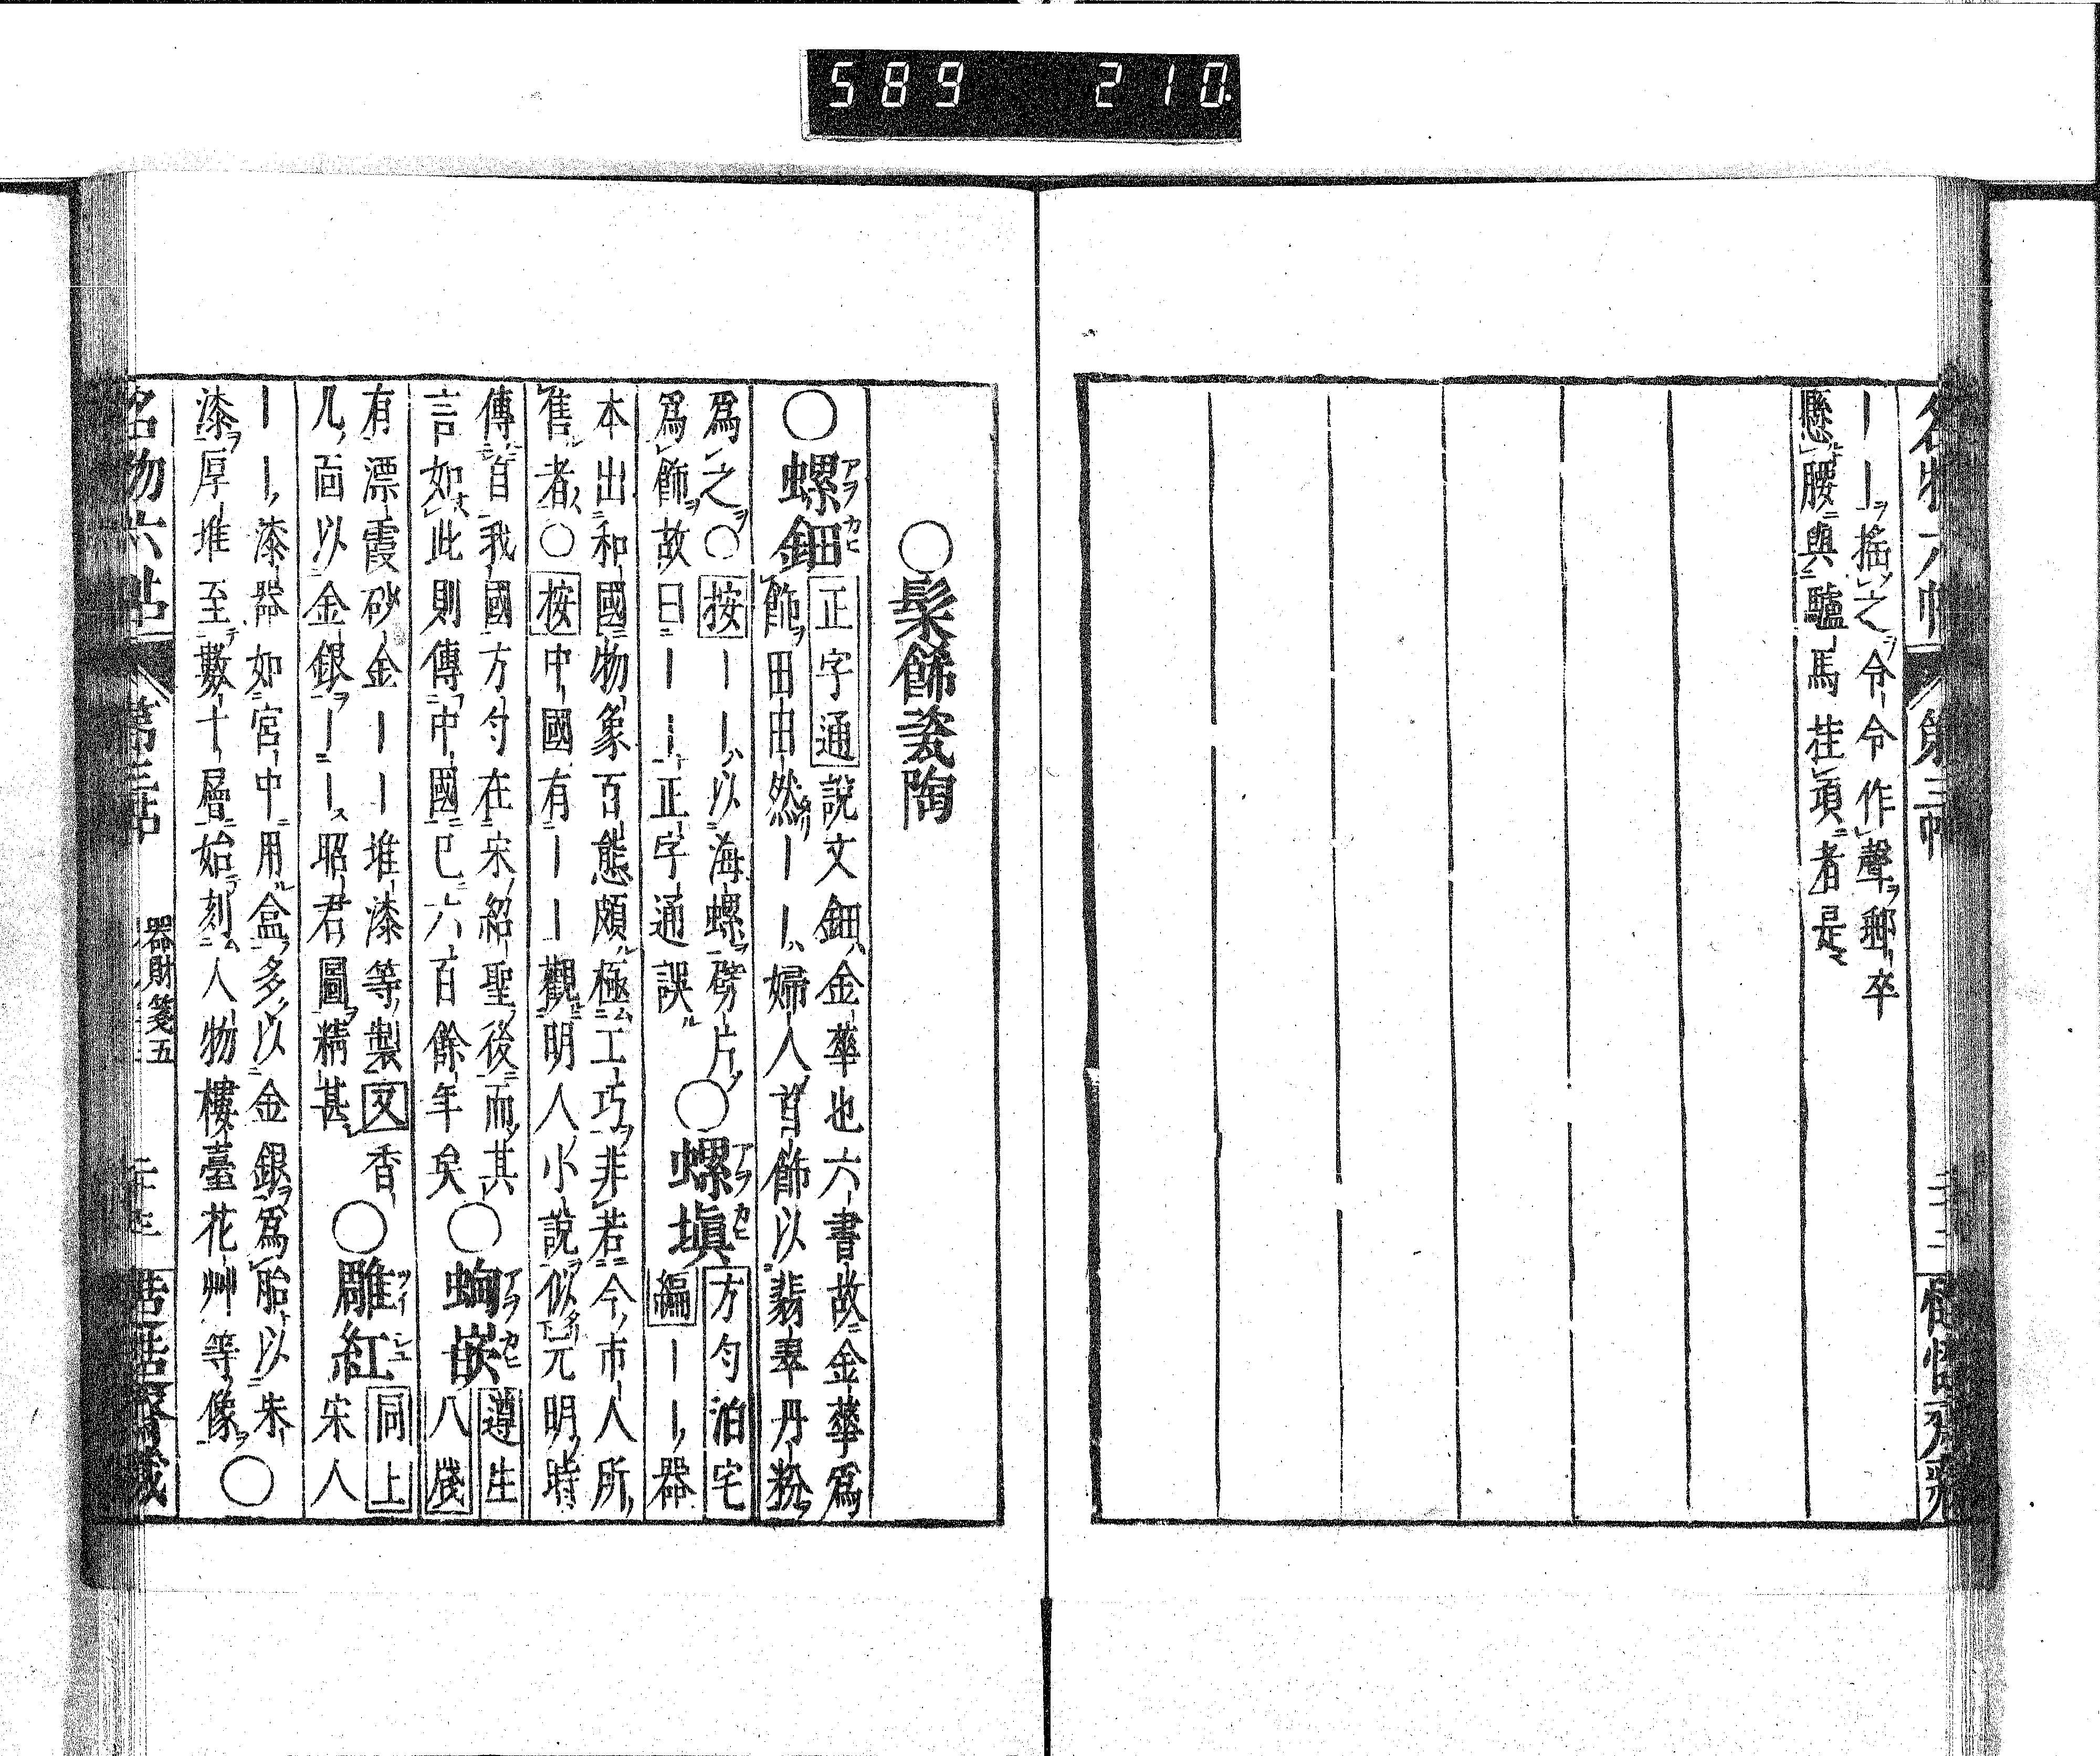 589 210
名物六帖 第三帖
｜｜ヲ搖之令令作聲郵卒
懸腰與驢馬荏項者是
○髹飾瓷陶
○螺鈿 正字通 說文鈿金華也六書故金華爲
飾田田然｜｜婦人首飾以翡翠丹粉
爲之○按｜｜以海螺劈片
爲飾故曰｜｜正字通誤 ○螺塡 方勺泊宅
編｜｜器
本出和國物象百態頗極工巧非若今市人所
售者○按中國有｜｜觀明人小說似元明時
傳自我國方勺在宋紹聖後而其
言如此則傳中國已六百餘年矣 ○蚼嵌 遵生
八牋
有漂霞砂金｜｜堆漆等製文香
几面以金銀｜｜昭君圖精甚 ○雕紅 同上
宋人
｜｜漆器如宮中用盒多以金銀爲胎以朱
漆厚堆至數十層始刻人物樓臺花艸等像○
名物六帖 第三帖 器財箋五